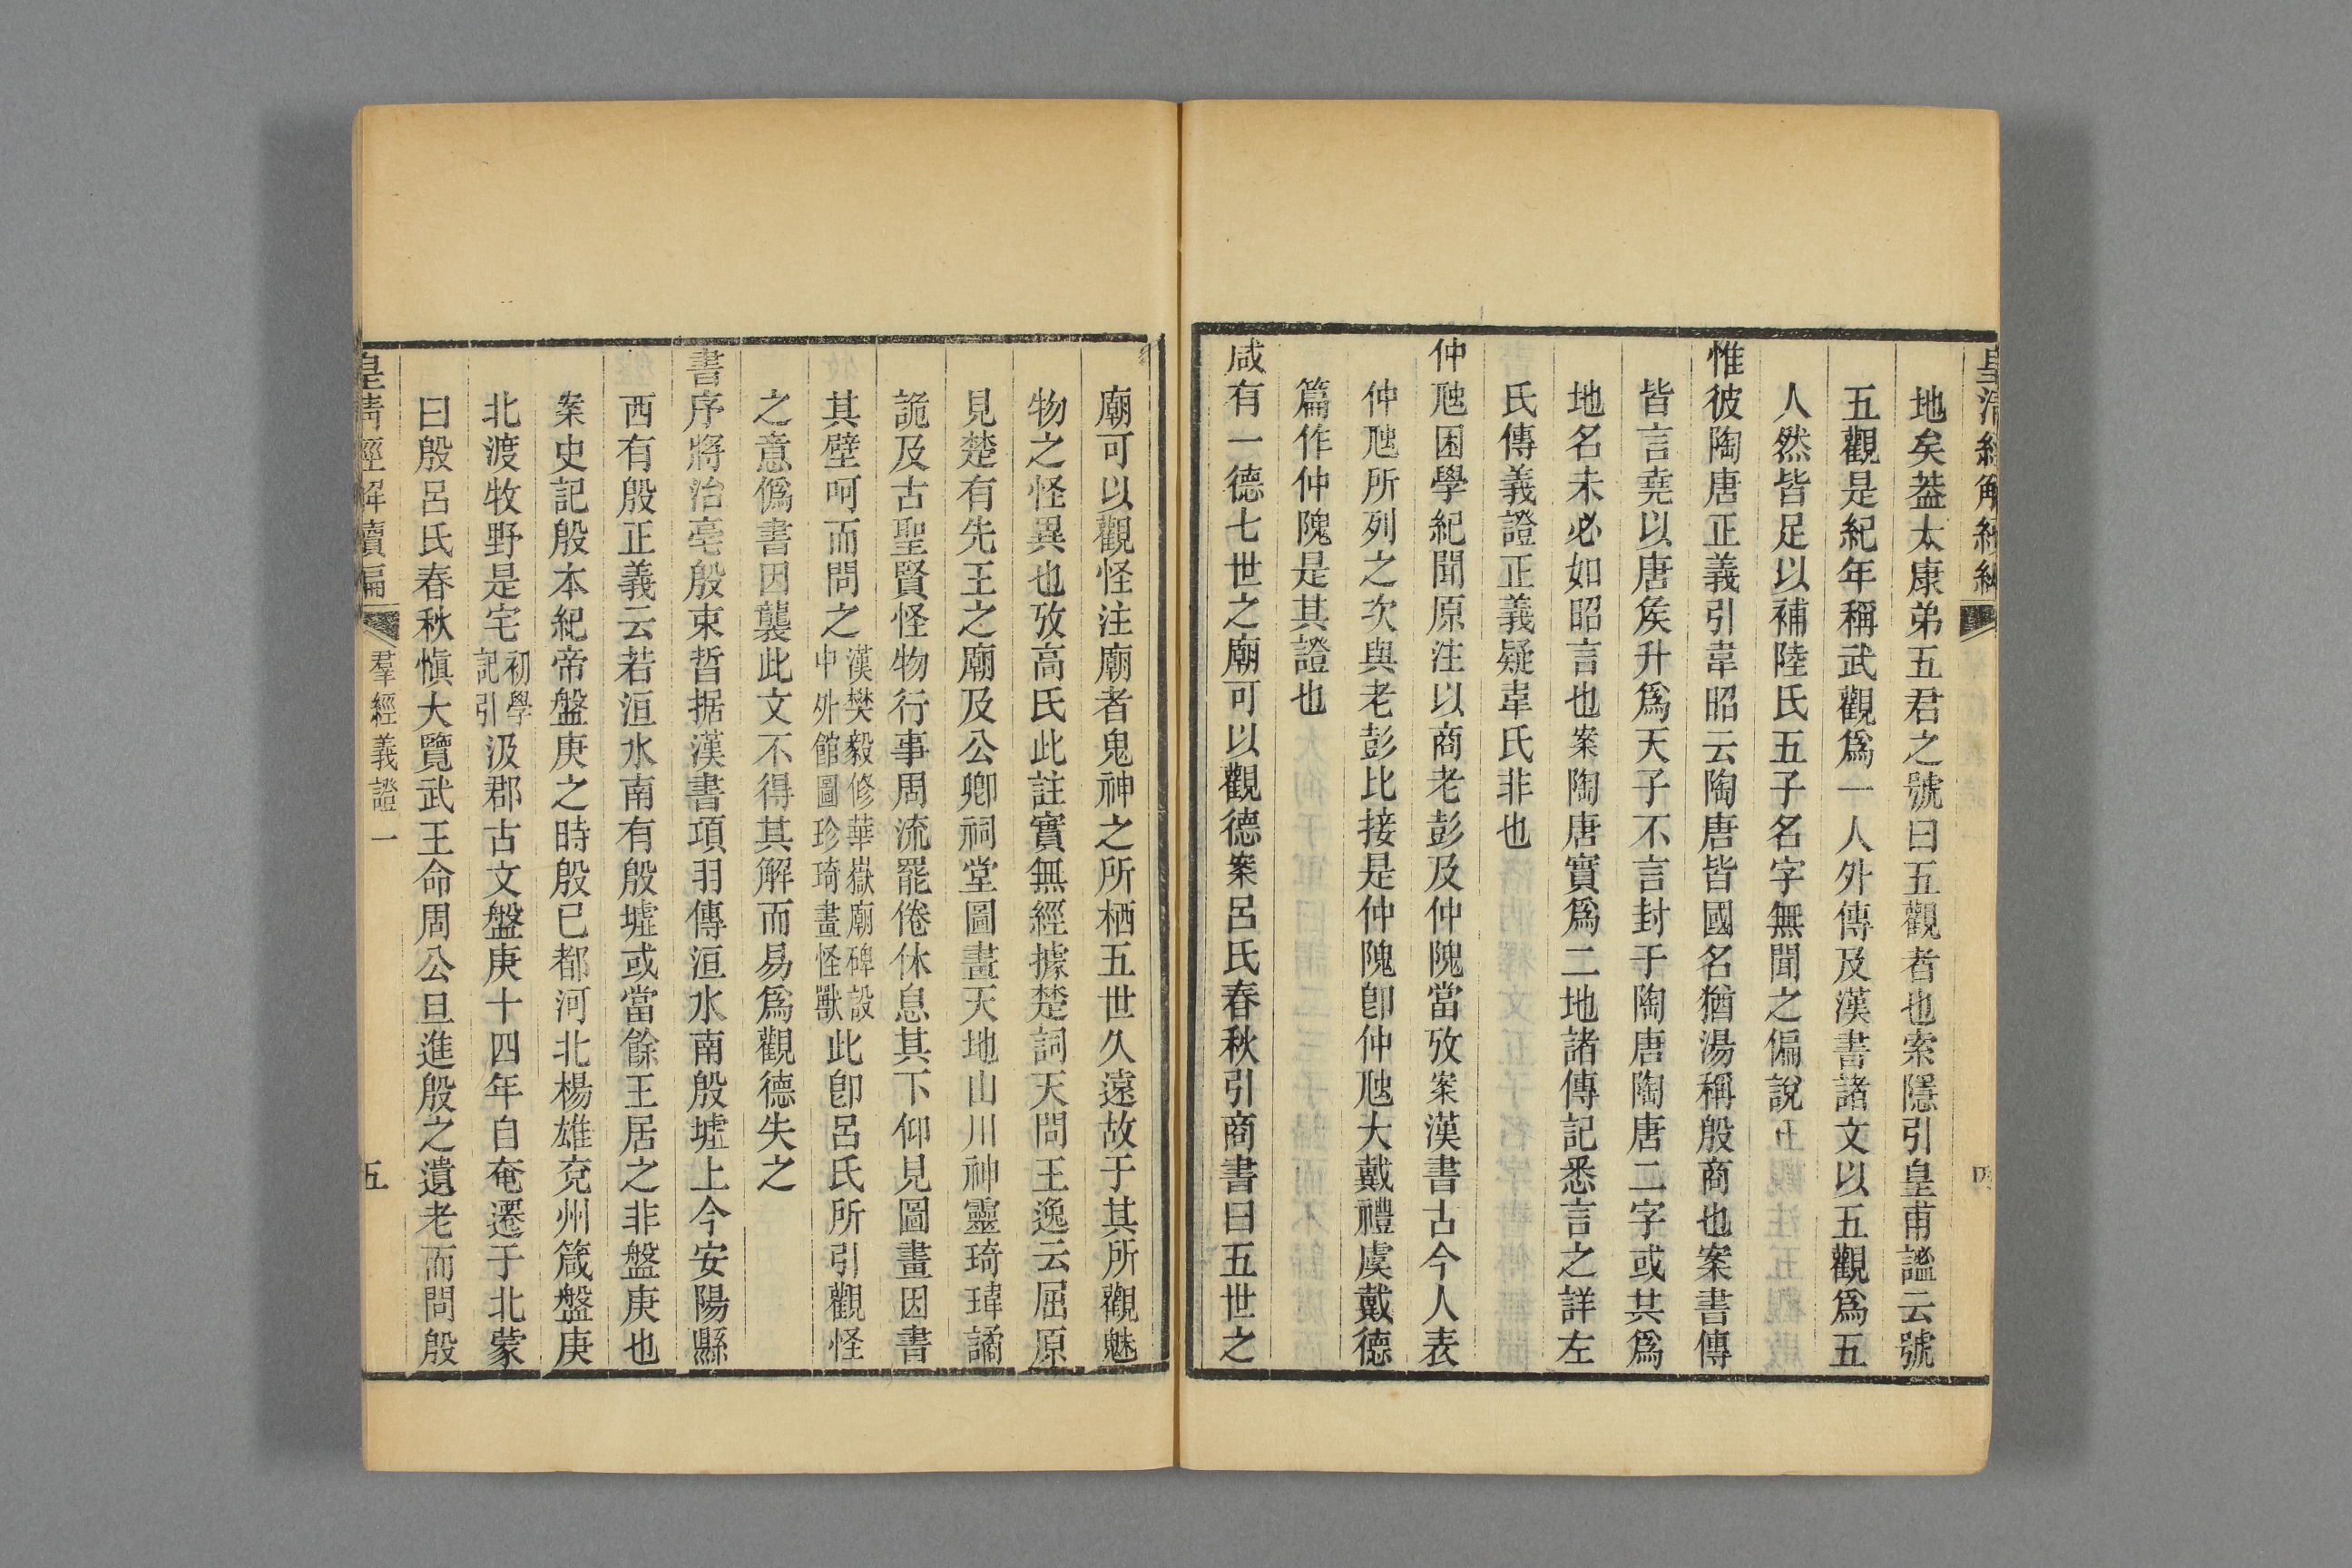 皇清經解續編
四
地矣葢太康弟五君之號曰五觀者也索隱引皇甫謐云號
五觀是紀年稱武觀爲一人外傳及漢書諸文以五觀爲五
人然皆足以補陸氏五子名字無聞之偏說
惟彼陶唐正義引韋昭云陶唐皆國名猶湯稱殷商也案書傳
皆言堯以唐矦升爲天子不言封于陶唐陶唐二字或其爲
地名未必如昭言也案陶唐實爲二地諸傳記悉言之詳左
氏傳義證正義疑韋氏非也
仲虺困學紀聞原注以商老彭及仲隗當攷案漢書古今人表
仲虺所列之次與老彭比接是仲隗卽仲虺大戴禮虞戴德
篇作仲隗是其證也
咸有一德七世之廟可以觀德案呂氏春秋引商書曰五世之
廟可以觀怪注廟者鬼神之所栖五世久遠故于其所觀魅
物之怪異也攷高氏此註實無經據楚詞天問王逸云屈原
見楚有先王之廟及公卿祠堂圖畫天地山川神靈琦瑋譎
詭及古聖賢怪物行事周流罷倦休息其下仰見圖畫因書
其壁呵而問之漢樊毅修華嶽廟碑設中外館圖珍琦畫怪獸此卽呂氏所引觀怪
之意僞書因襲此文不得其解而易爲觀德失之
書序將治亳殷束晳据漢書項羽傳洹水南殷墟上今安陽縣
西有殷正義云若洹水南有殷墟或當餘王居之非盤庚也
案史記殷本紀帝盤庚之時殷已都河北楊雄兗州箴盤庚
北渡牧野是宅初學記引汲郡古文盤庚十四年自奄遷于北蒙
曰殷呂氏春秋愼大覽武王命周公旦進殷之遺老而問殷
皇清經解續編
羣經義證一
五